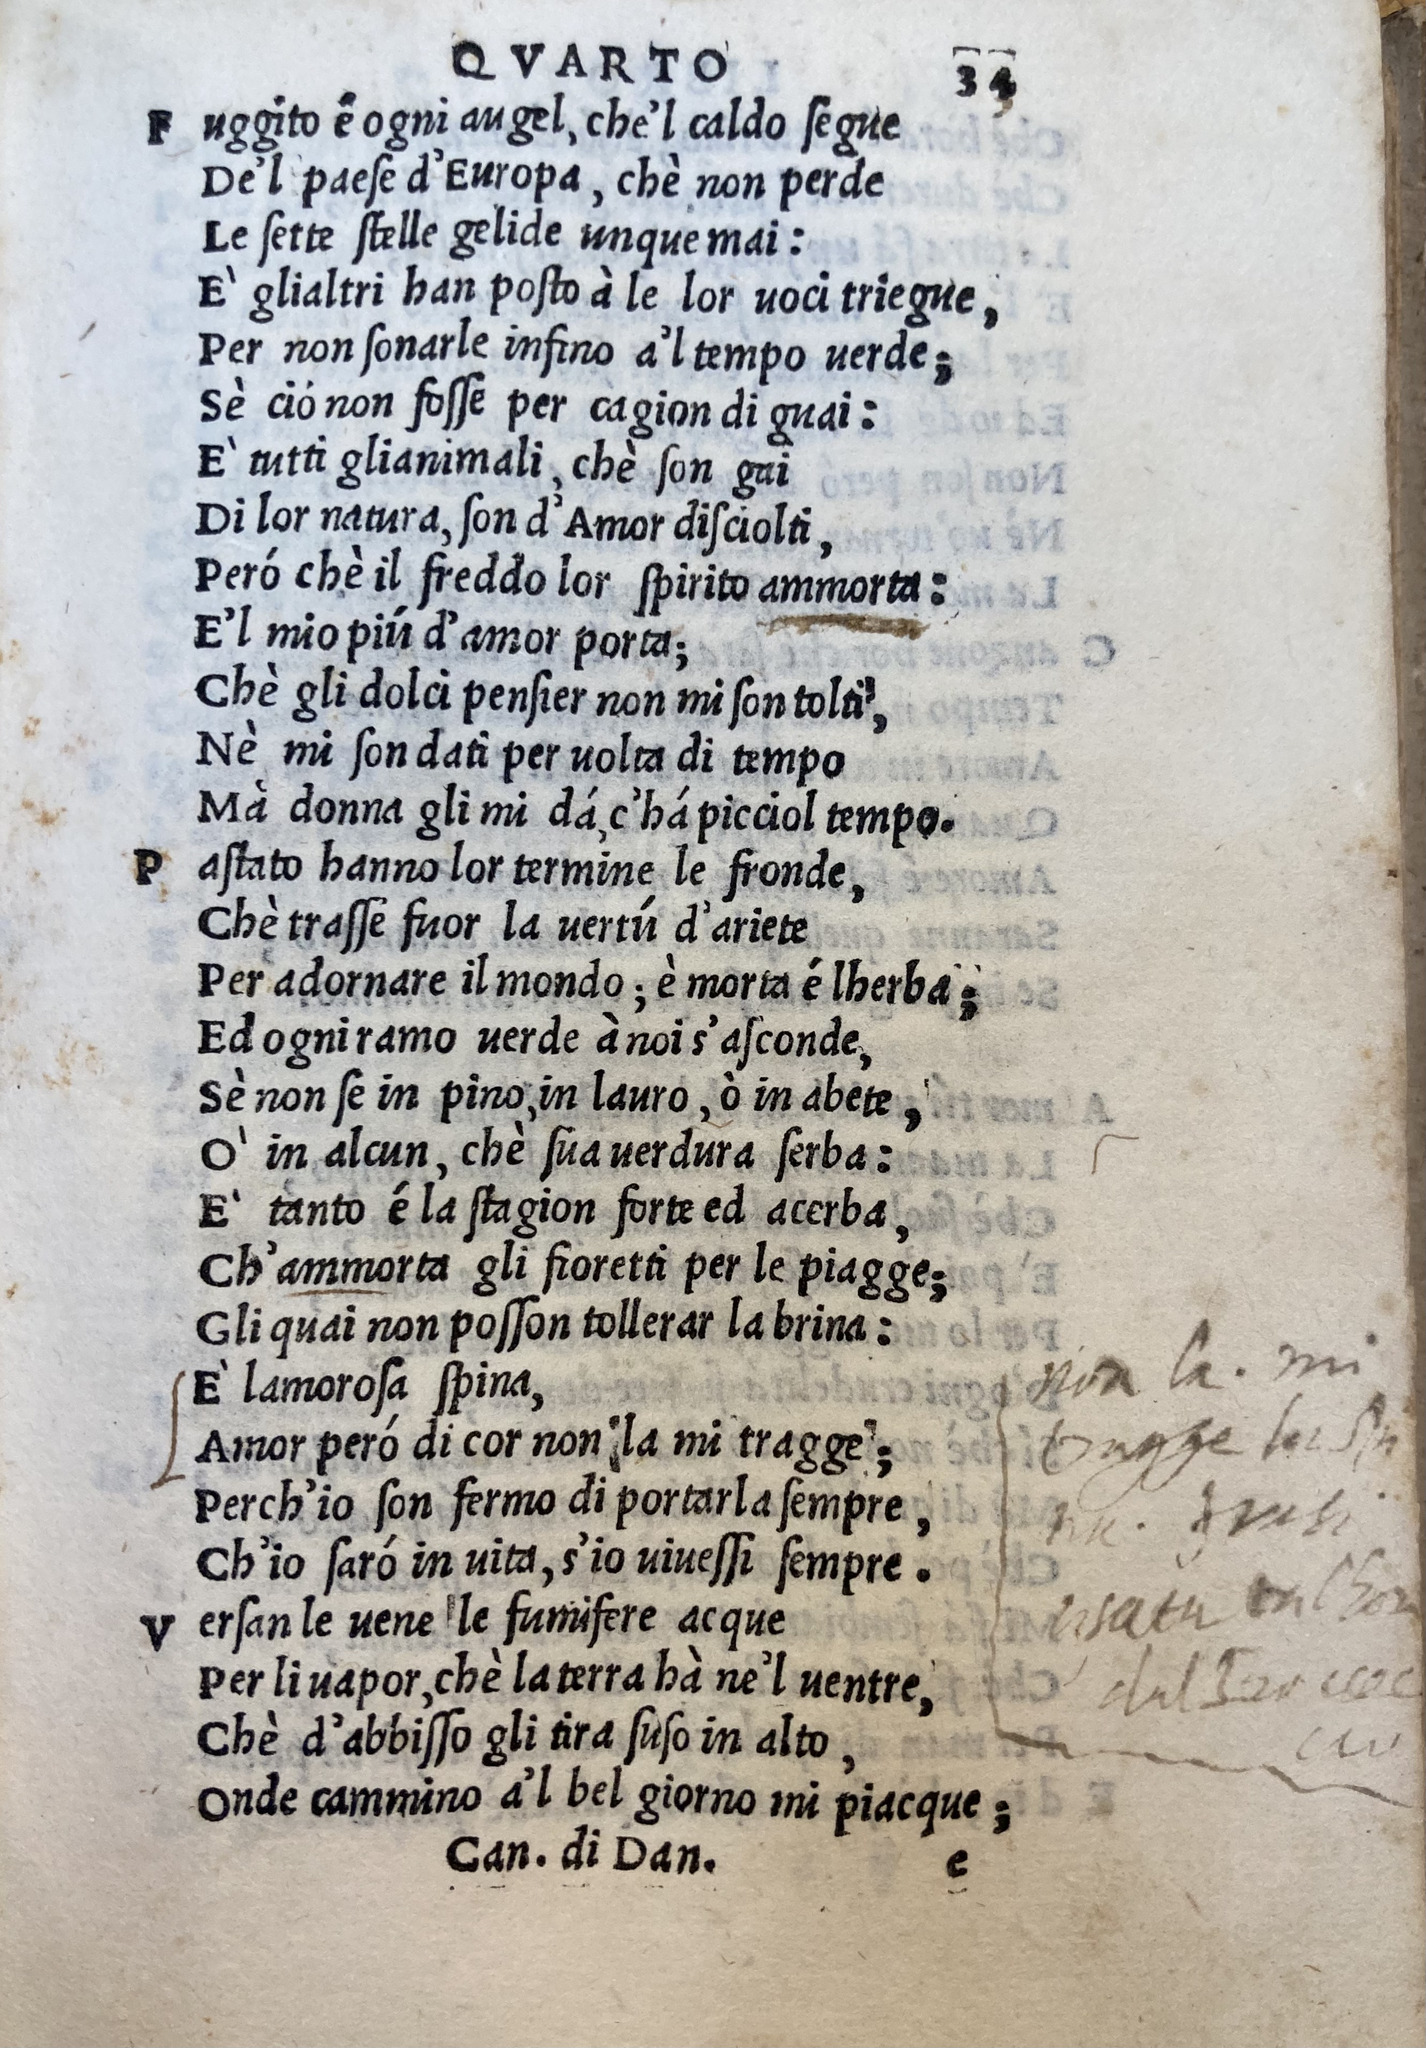 QVARTO 34
Fuggito é ogni augel, che'l caldo ſegue
De'l paeſe d'Europa, chè non perde
Le ſette ſtelle gelide unque mai:
E' glialtri han poſto à le lor uoci triegue,
Per non ſonarle infino a'l tempo uerde;
Sè ció non foſſe per cagion di guai:
E' tutti glianimali, chè ſon gai
Di lor natura, ſon d'Amor diſciolti,
Peró chè il freddo lor ſpirito ammorta:
E'l mio piú d'amor porta;
Chè gli dolci penſier non mi ſon tolti,
Nè mi ſon dati per uolta di tempo
Mà donna gli mi dá, c'há picciol tempo.
Paſſato hanno lor termine le fronde,
Chè traſſe fuor la uertú d'ariete
Per adornare il mondo; è morta é lherba;
Ed ogni ramo uerde à noi s'aſconde,
Sè non ſe in pino, in lauro, ò in abete,
O' in alcun, chè ſua uerdura ſerba:
E' tanto é la ſtagion forte ed acerba,
Ch'ammorta gli fioretti per le piagge;
Gli quai non poſſon tollerar la brina:
E' lamoroſa ſpina,
Amor peró di cor non la mi tragge;
Perch'io ſon fermo di portarla ſempre,
Ch'io ſaró in uita, s'io uiueſſi ſempre.
Verſan le uene le fumifere acque
Per li uapor, chè la terra hà ne'l uentre,
Chè d'abbiſſo gli tira ſuſo in alto,
Onde cammino a'l bel giorno mi piacque;
Can. di Dan. e
non la. mi
tragge la
dal